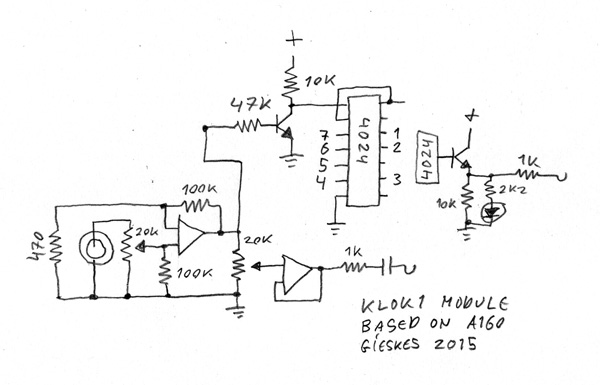 +
10K
47K
4024
7
6
5
4
1
2
3
+
4024
1K
10K
2K2
100K
470
20K
100K
20K
1K
KLOK1 MODULE
BASED ON A160
GIESKES 2015